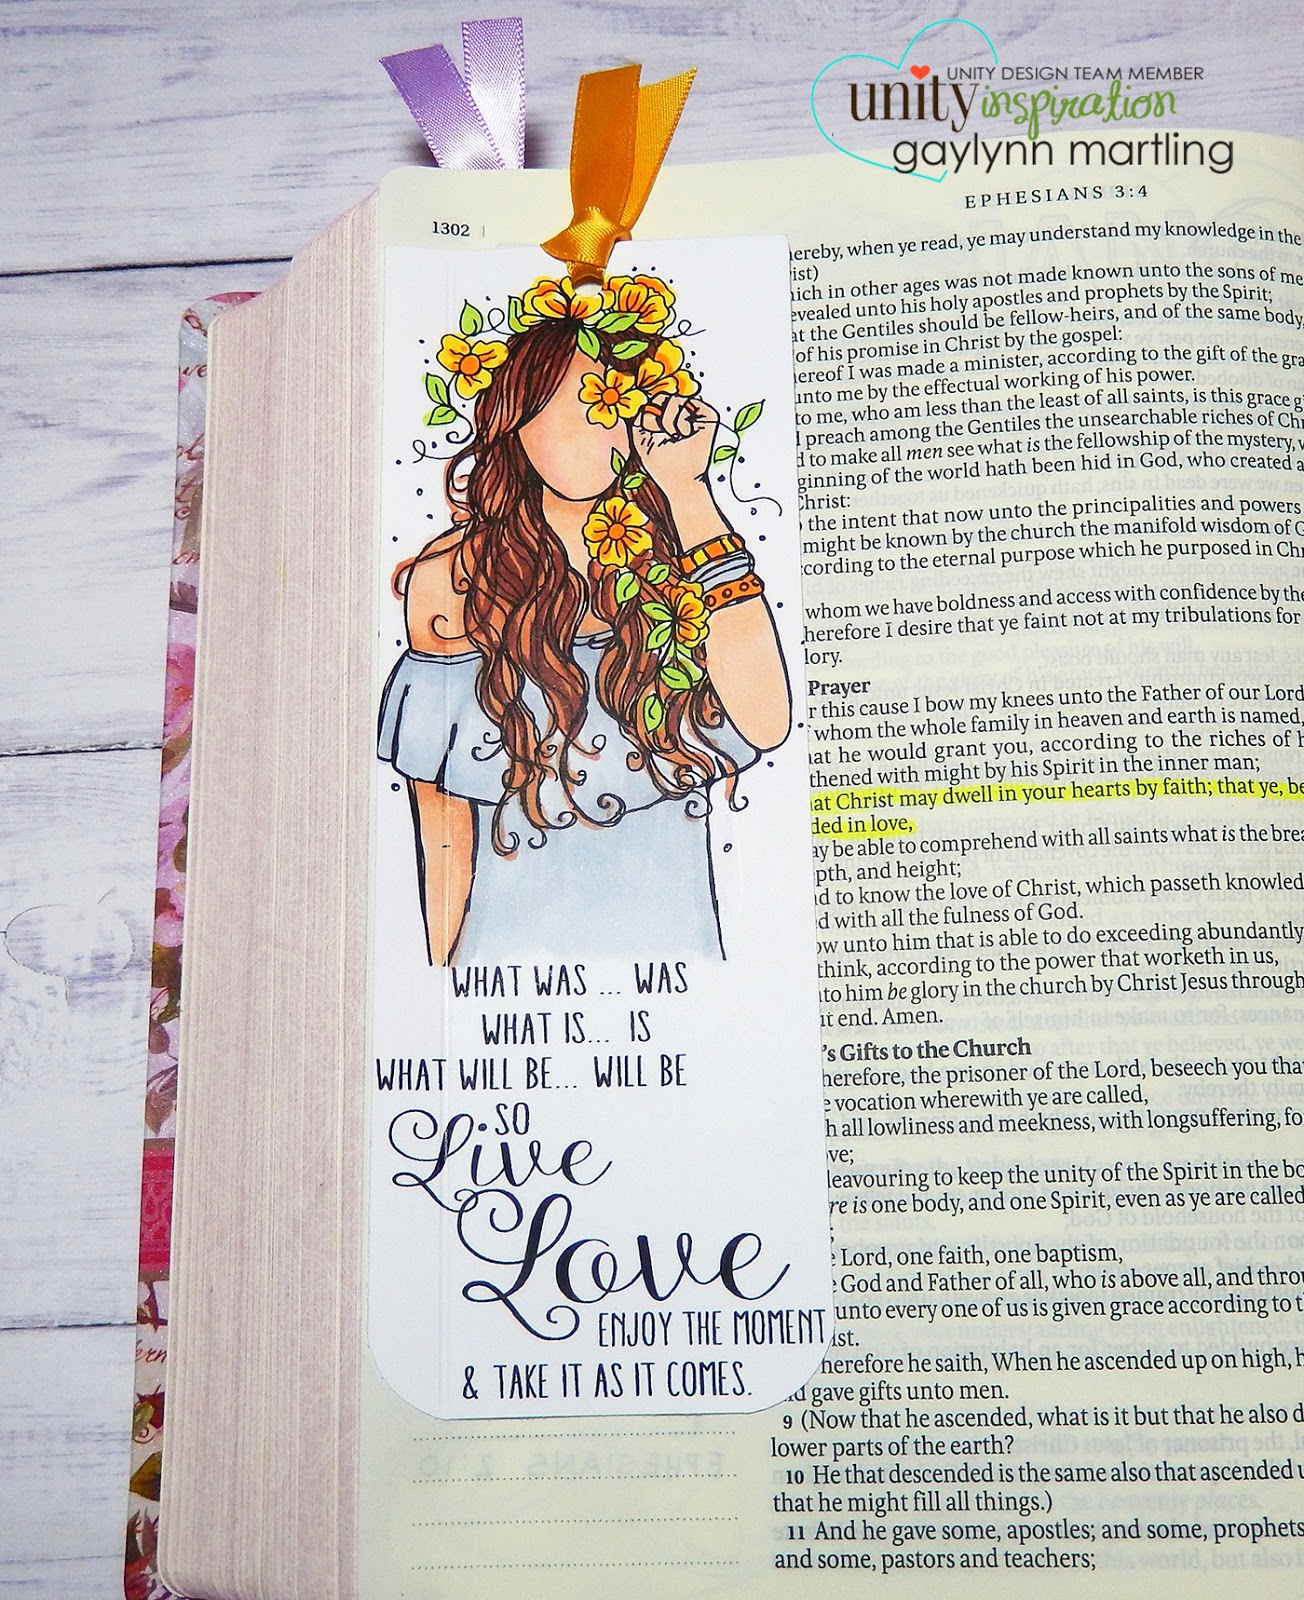 UNITY DESIGN TEAM MEMBER
unity inspiration
gaylynn martling
EPHESIANS 3:4
1302
hereby, when ye read, ye may understand my knowledge in the
ist)
hich in other ages was not made known unto the sons of me
evealed unto his holy apostles and prophets by the Spirit;
at the Gentiles should be fellow-heirs, and of the same body,
of his promise in Christ by the gospel:
hereof I was made a minister, according to the gift of the gra
unto me by the effectual working of his power.
to me, who am less than the least of all saints, is this grace gi
preach among the Gentiles the unsearchable riches of Chr
d to make all men see what is the fellowship of the mystery, w
ginning of the world hath been hid in God, who created a
Christ:
the intent that now unto the principalities and powers
might be known by the church the manifold wisdom of G
ccording to the eternal purpose which he purposed in Chr
whom we have boldness and access with confidence by the
herefore I desire that ye faint not at my tribulations for
lory.
Prayer
r this cause I bow my knees unto the Father of our Lord
whom the whole family in heaven and earth is named,
at he would grant you, according to the riches of h
thened with might by his Spirit in the inner man;
at Christ may dwell in your hearts by faith; that ye, be
ded in love,
ay be able to comprehend with all saints what is the brea
pth, and height;
d to know the love of Christ, which passeth knowled
d with all the fulness of God.
ow unto him that is able to do exceeding abundantly
think, according to the power that worketh in us,
to him be glory in the church by Christ Jesus through
it end. Amen.
's Gifts to the Church
herefore, the prisoner of the Lord, beseech you tha
e vocation wherewith ye are called,
h all lowliness and meekness, with longsuffering, fo
ve;
deavouring to keep the unity of the Spirit in the bo
re is one body, and one Spirit, even as ye are called
e Lord, one faith, one baptism,
e God and Father of all, who is above all, and throu
unto every one of us is given grace according to t
ist.
herefore he saith, When he ascended up on high, h
d gave gifts unto men.
9 (Now that he ascended, what is it but that he also d
lower parts of the earth?
10 He that descended is the same also that ascended u
that he might fill all things.)
11 And he gave some, apostles; and some, prophets
and some, pastors and teachers;
WHAT WAS ... WAS
WHAT IS... IS
WHAT WILL BE... WILL BE
SO
Live
Love
ENJOY THE MOMENT
& TAKE IT AS IT COMES.